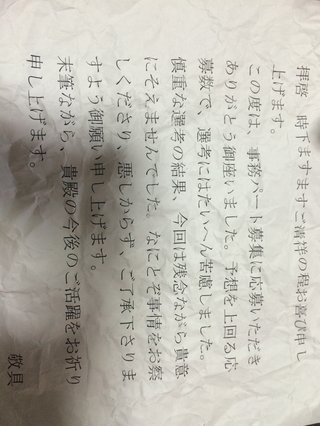 拝啓　時下ますますご清祥の程お喜び申し
上げます。
この度は、事務パート募集に応募いただき
ありがとう御座いました。予想を上回る応
募数で、選考にはたいへん苦慮しました。
慎重な選考の結果、今回は残念ながら貴意
にそえませんでした。なにとぞ事情をお察
しくださり、悪しからず、ご了承下さりま
すよう御願い申し上げます。
末筆ながら、貴殿の今後のご活躍をお祈り
申し上げます。
敬具